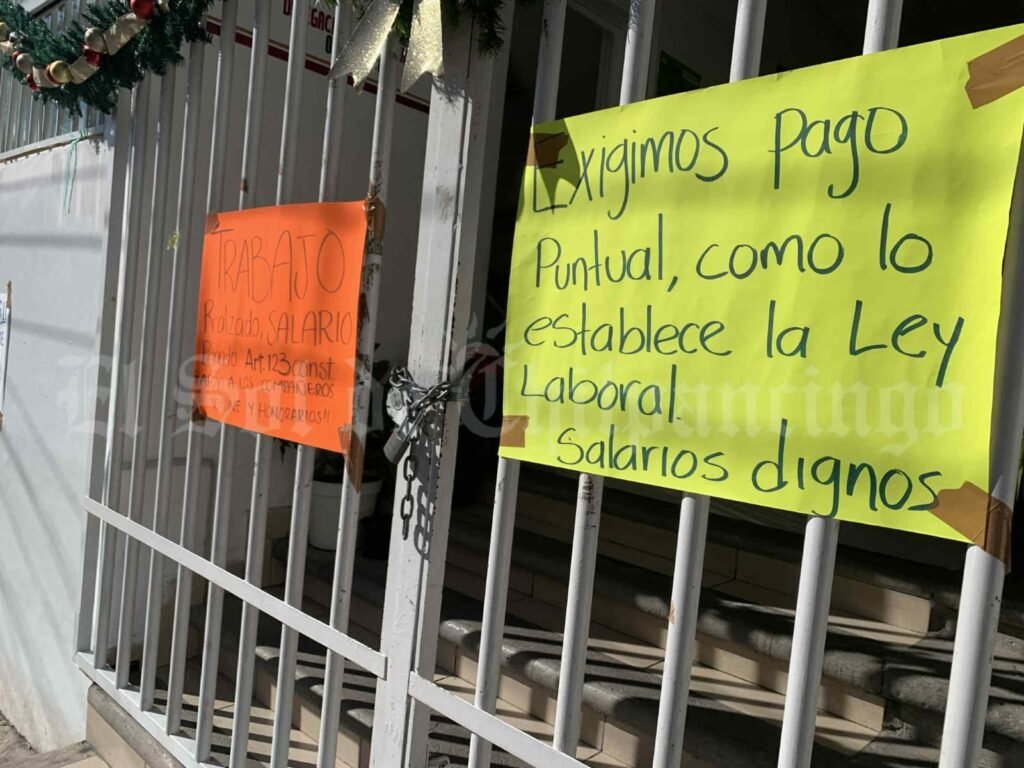 DELEGAC
TRABAJO
Realizado, SALARIO
Pagado Art. 123 const
A LOS COMPAÑEROS
Y HONORARIOS!!
Exigimos pago
Puntual, como lo
establece la Ley
Laboral.
Salarios dignos
El Sol de Chilpancingo